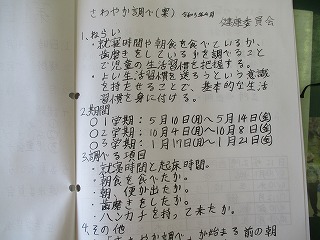 さわやか調べ(案) 令和3年4月
健康委員会
1,ねらい
・就寝時間や朝食を食べているか、
歯磨きをしているかを調べるこ
とで児童の生活習慣を把握する。
・よい生活習慣を送ろうという意識
を持たせることで、基本的な生活
習慣を身に付ける。
2.期間
○1学期：5月10日(月)～5月14日(金)
○2学期：10月4日(月)～10月8日(金)
○3学期：1月17日(月)～1月21日(金)
3.調べる項目
・就寝時間と起床時間。
・朝食を食べたか。
・朝、便が出たか。
・歯磨きをしたか。
・ハンカチを持って来たか。
4.その他
「さわやか調べ」が始まる前の朝